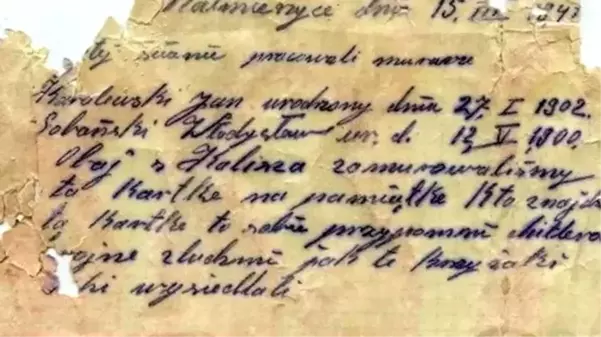 dnia 15. III 1941
tej ścianie pracowali murarze
Karolewski Jan urodzony dnia 27. I 1902.
Sobański Władysław ur. d. 12 V 1900.
Obaj z Kalisza zamurowaliśmy
tą kartkę na pamiątkę Kto znajdz
tą kartkę to sobie przypomni hitlero
wojne z ludzmi jak te krzyżaki
wysiedlali